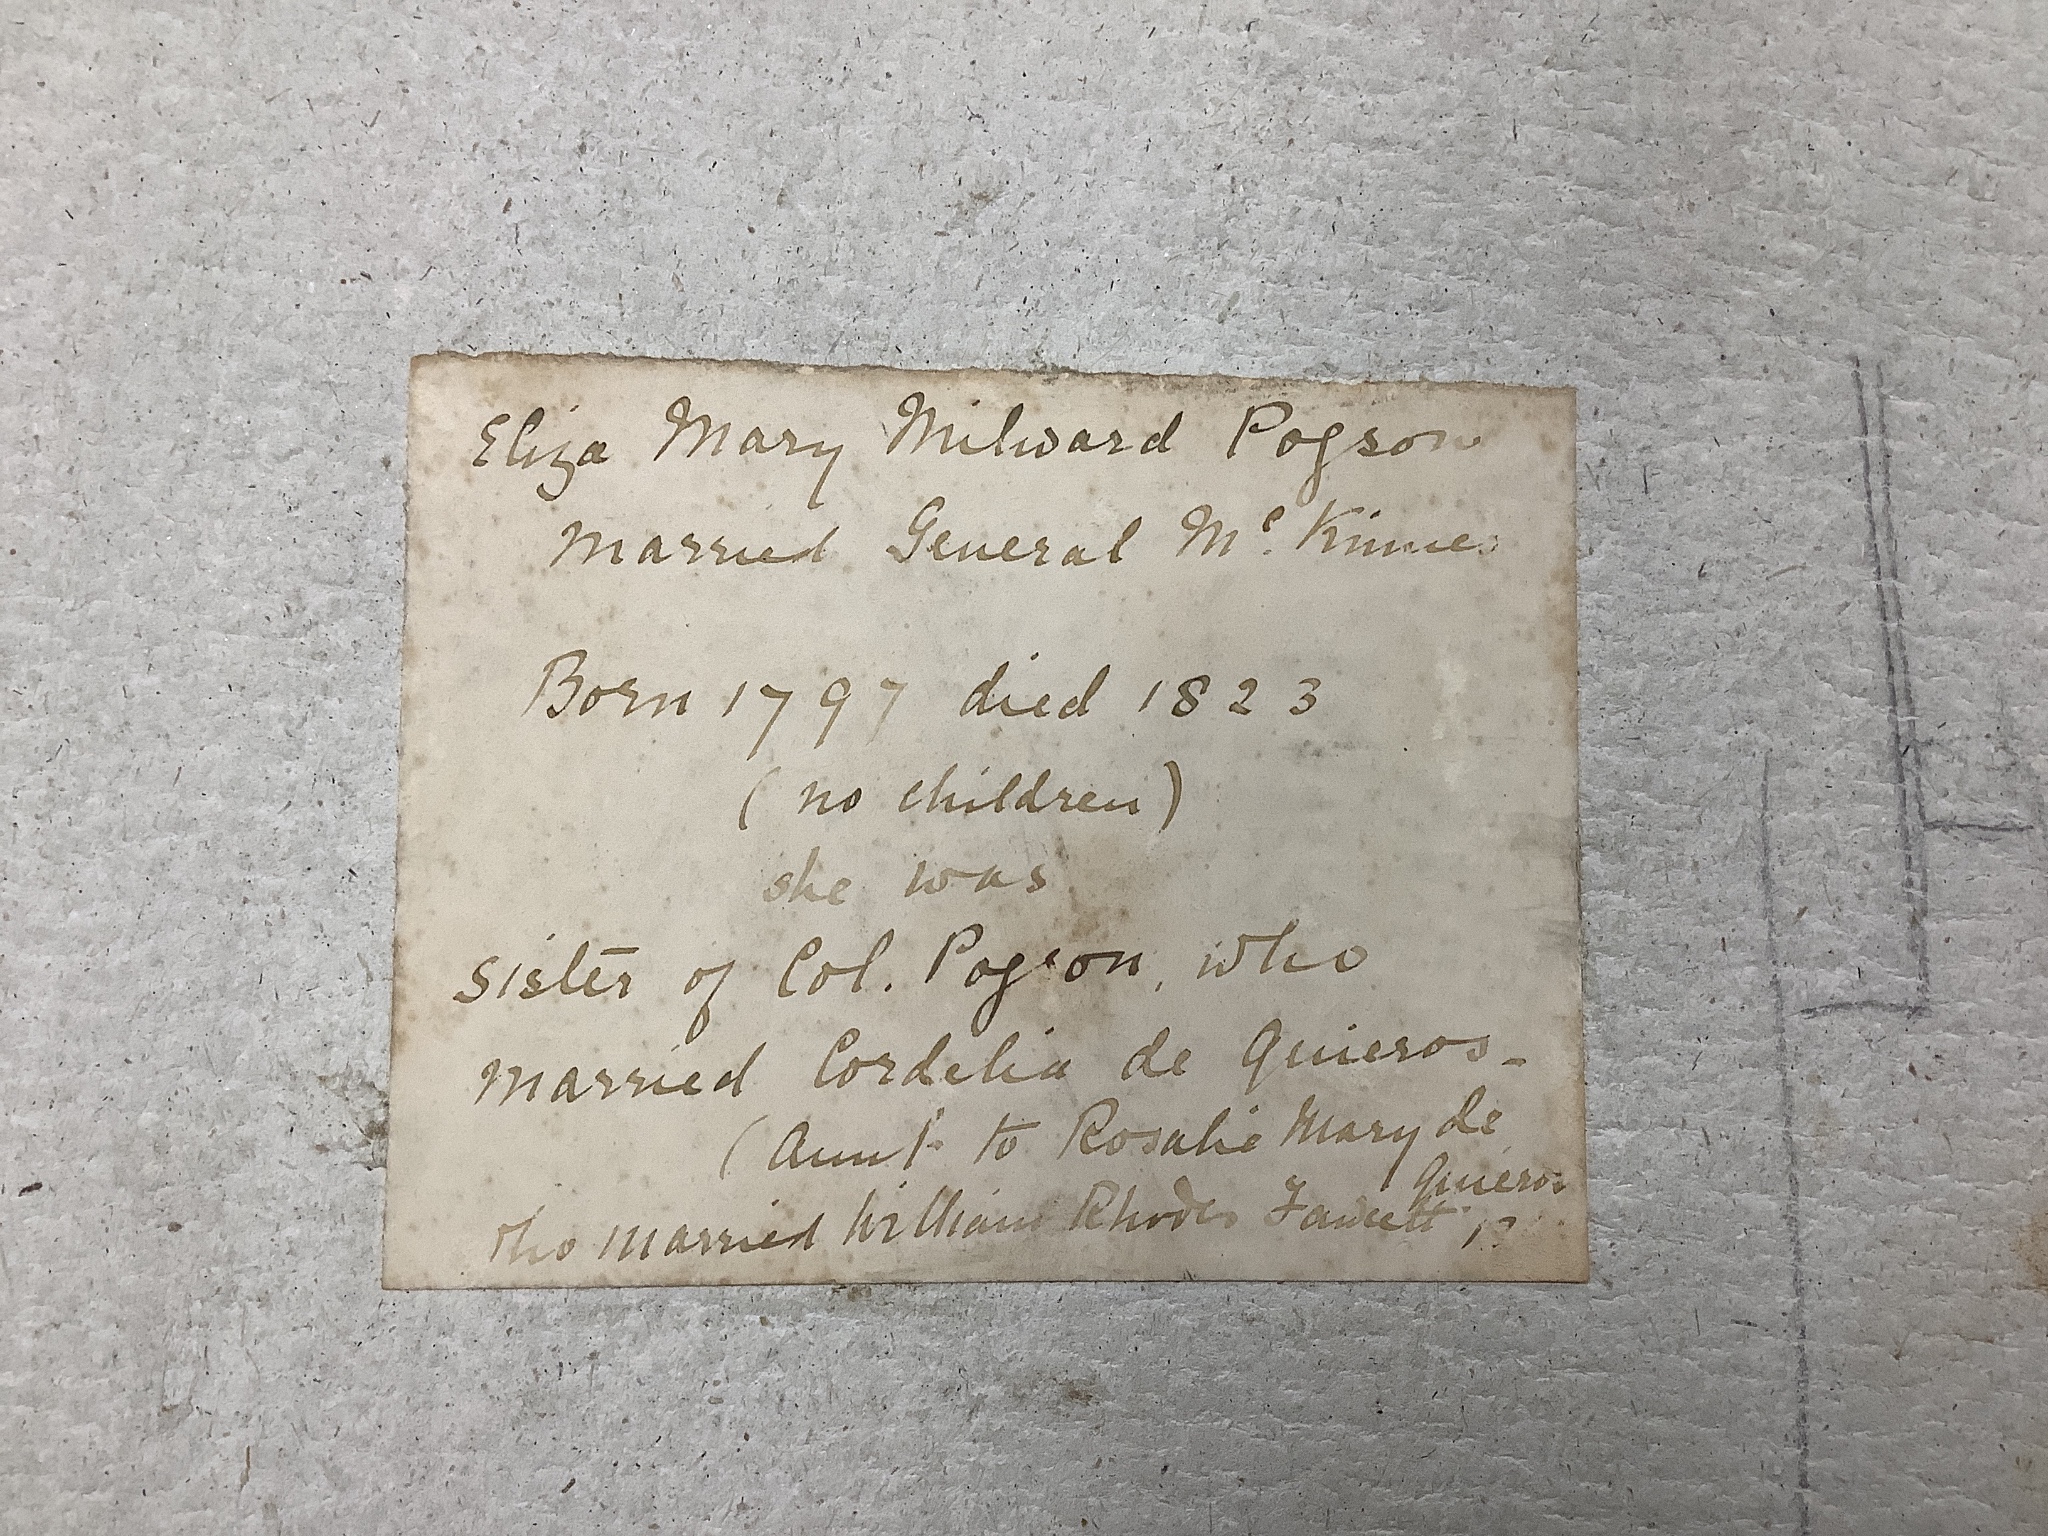 Eliza Mary Milward Pogson
Married General Mc. Kinnes
Born 1797 died 1823
(no children)
she was
sister of Col. Pogson, who
married Cordelia de Quieros -
(Aunt to Rosalie Mary de
Quieros
who married William Rhodes Fawcett